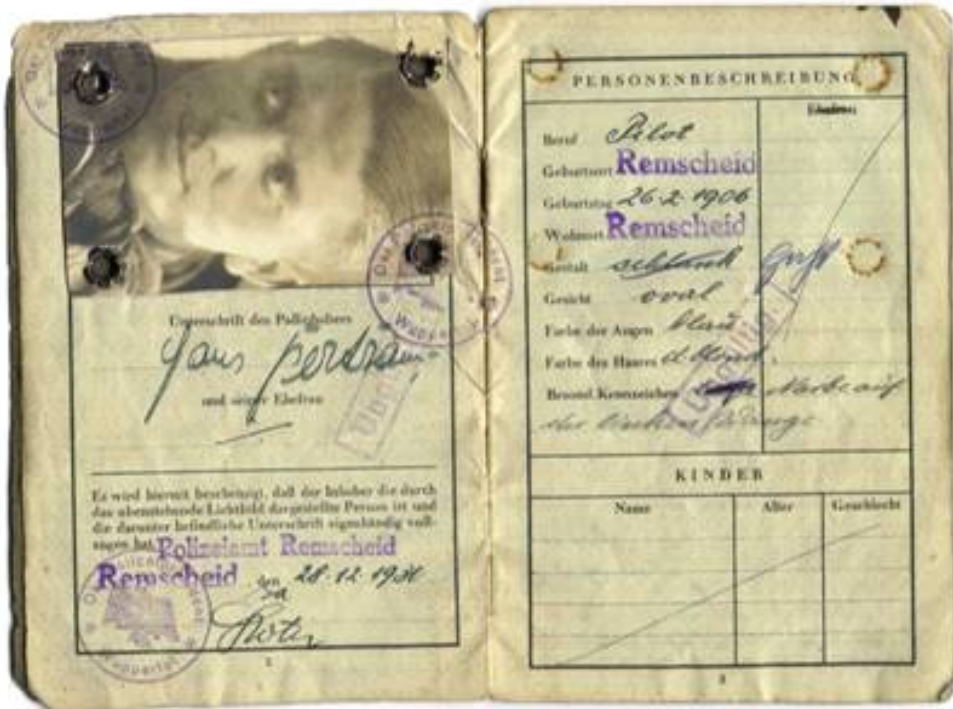 Unterschrift des Paßinhabers
Hans Bertram
und seiner Ehefrau
Ungültig
Es wird hiermit bescheinigt, daß der Inhaber die durch
das obenstehende Lichtbild dargestellte Person ist und
die darunter befindliche Unterschrift eigenhändig voll-
zogen hat.
Polizeiamt Remscheid
Remscheid, den 28.12.1931
Wuppertal
PERSONENBESCHREIBUNG
Ehefrau
Beruf Pilot
Geburtsort Remscheid
Geburtstag 26.2.1906
Wohnort Remscheid
Gestalt schlank
Gesicht oval
Farbe der Augen blau
Farbe des Haares d.blond
Besond. Kennzeichen Narbe auf
der linken Wange
Ungültig
KINDER
Name Alter Geschlecht